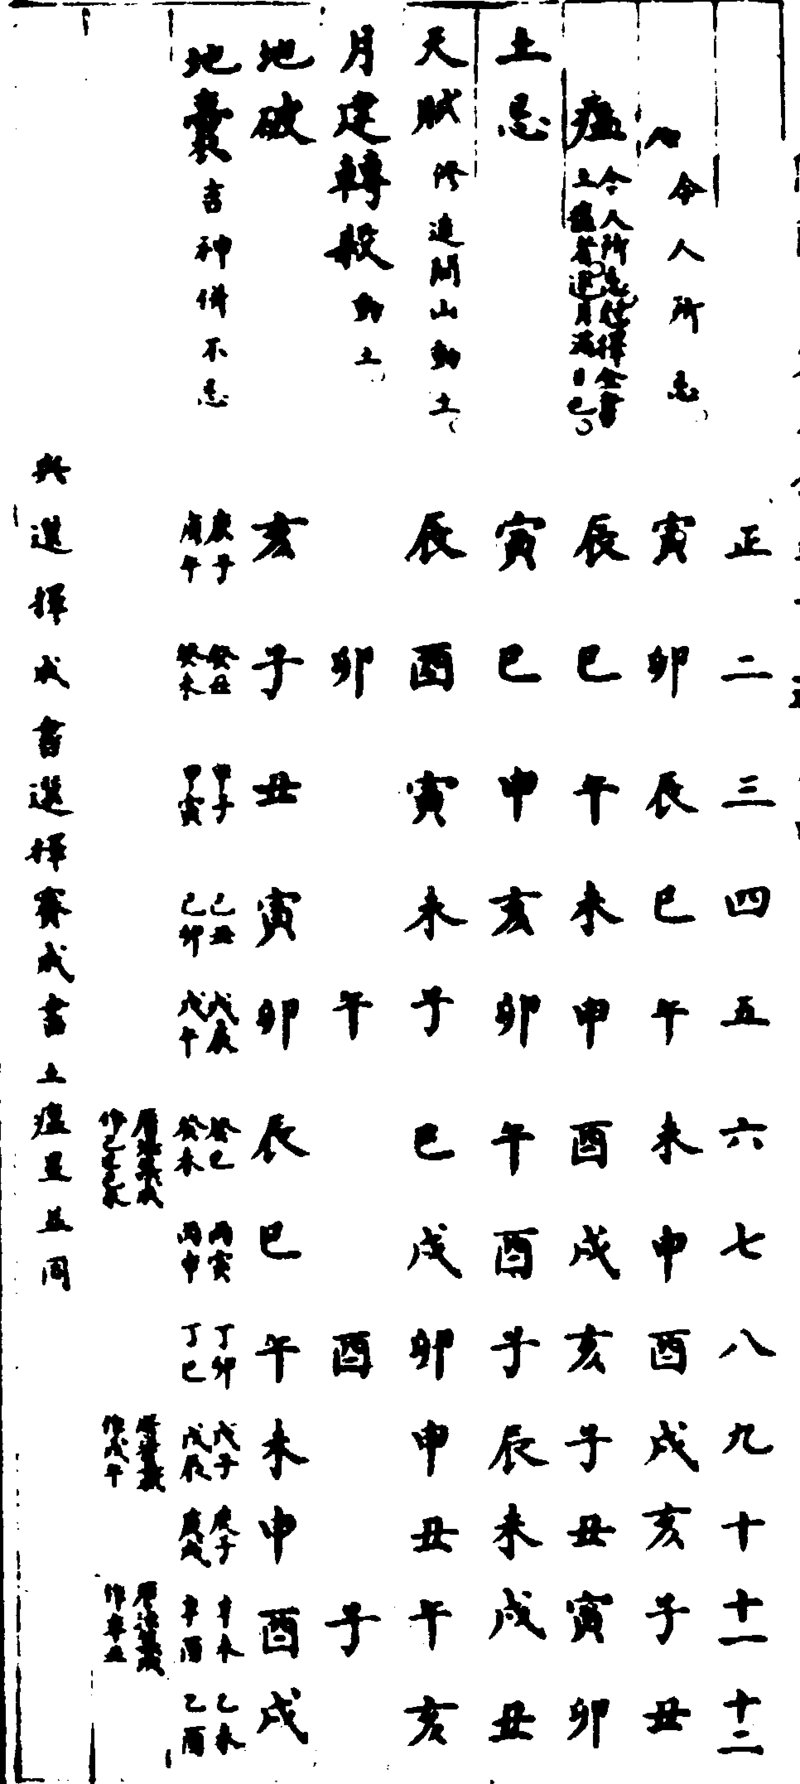 正 二 三 四 五 六 七 八 九 十 十一 十二
令人所忌 寅 卯 辰 巳 午 未 申 酉 戌 亥 子 丑
瘟 令人所忌 土瘟者 月滿日也 辰 巳 午 未 申 酉 戌 亥 子 丑 寅 卯
土忌 寅 巳 申 亥 卯 午 酉 子 辰 未 戌 丑
天賊 修造開山動土 辰 酉 寅 未 子 巳 戌 卯 申 丑 午 亥
月建轉殺 動土 卯 午 酉 子
地破 亥 子 丑 寅 卯 辰 巳 午 未 申 酉 戌
地囊 吉神併不忌 庚子 庚午 癸丑 癸未 甲子 甲寅 己丑 己卯 戊辰 戊午 癸巳 癸未 丙寅 丙申 丁卯 丁巳 戊子 戊辰 庚子 庚戌 辛未 辛酉 乙未 乙酉
作戊午
作辛丑
與選擇成書選擇賽成書土瘟並同